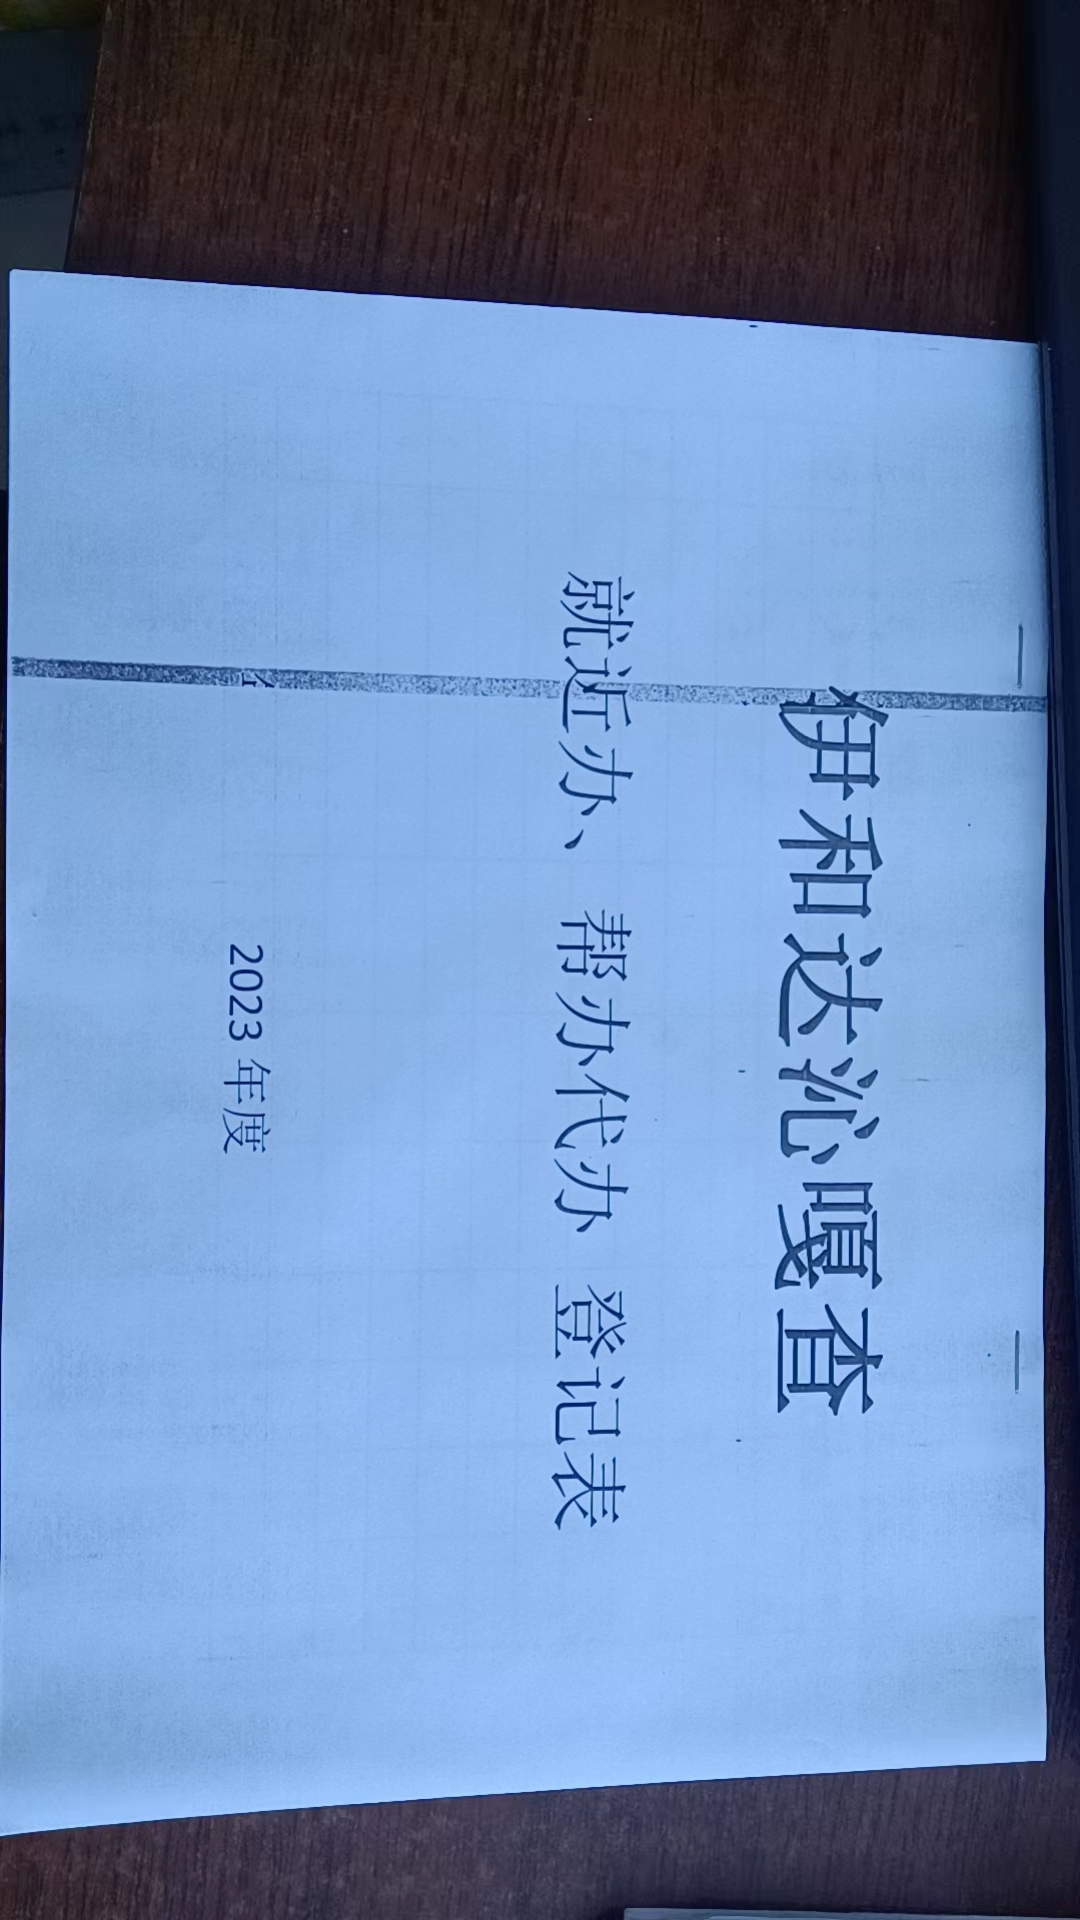 伊和达沁嘎查
就近办、帮办代办 登记表
2023 年度